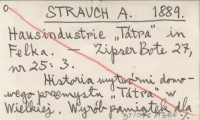 STRAUCH A. 1889.
Hausindustrie „Tátra" in
Felka. — Zipser Bote 27,
nr 25: 3.
Historia wytwórni domo-
wego przemysłu „Tátra" w
Wielkiej. Wyrób pamiątek dla